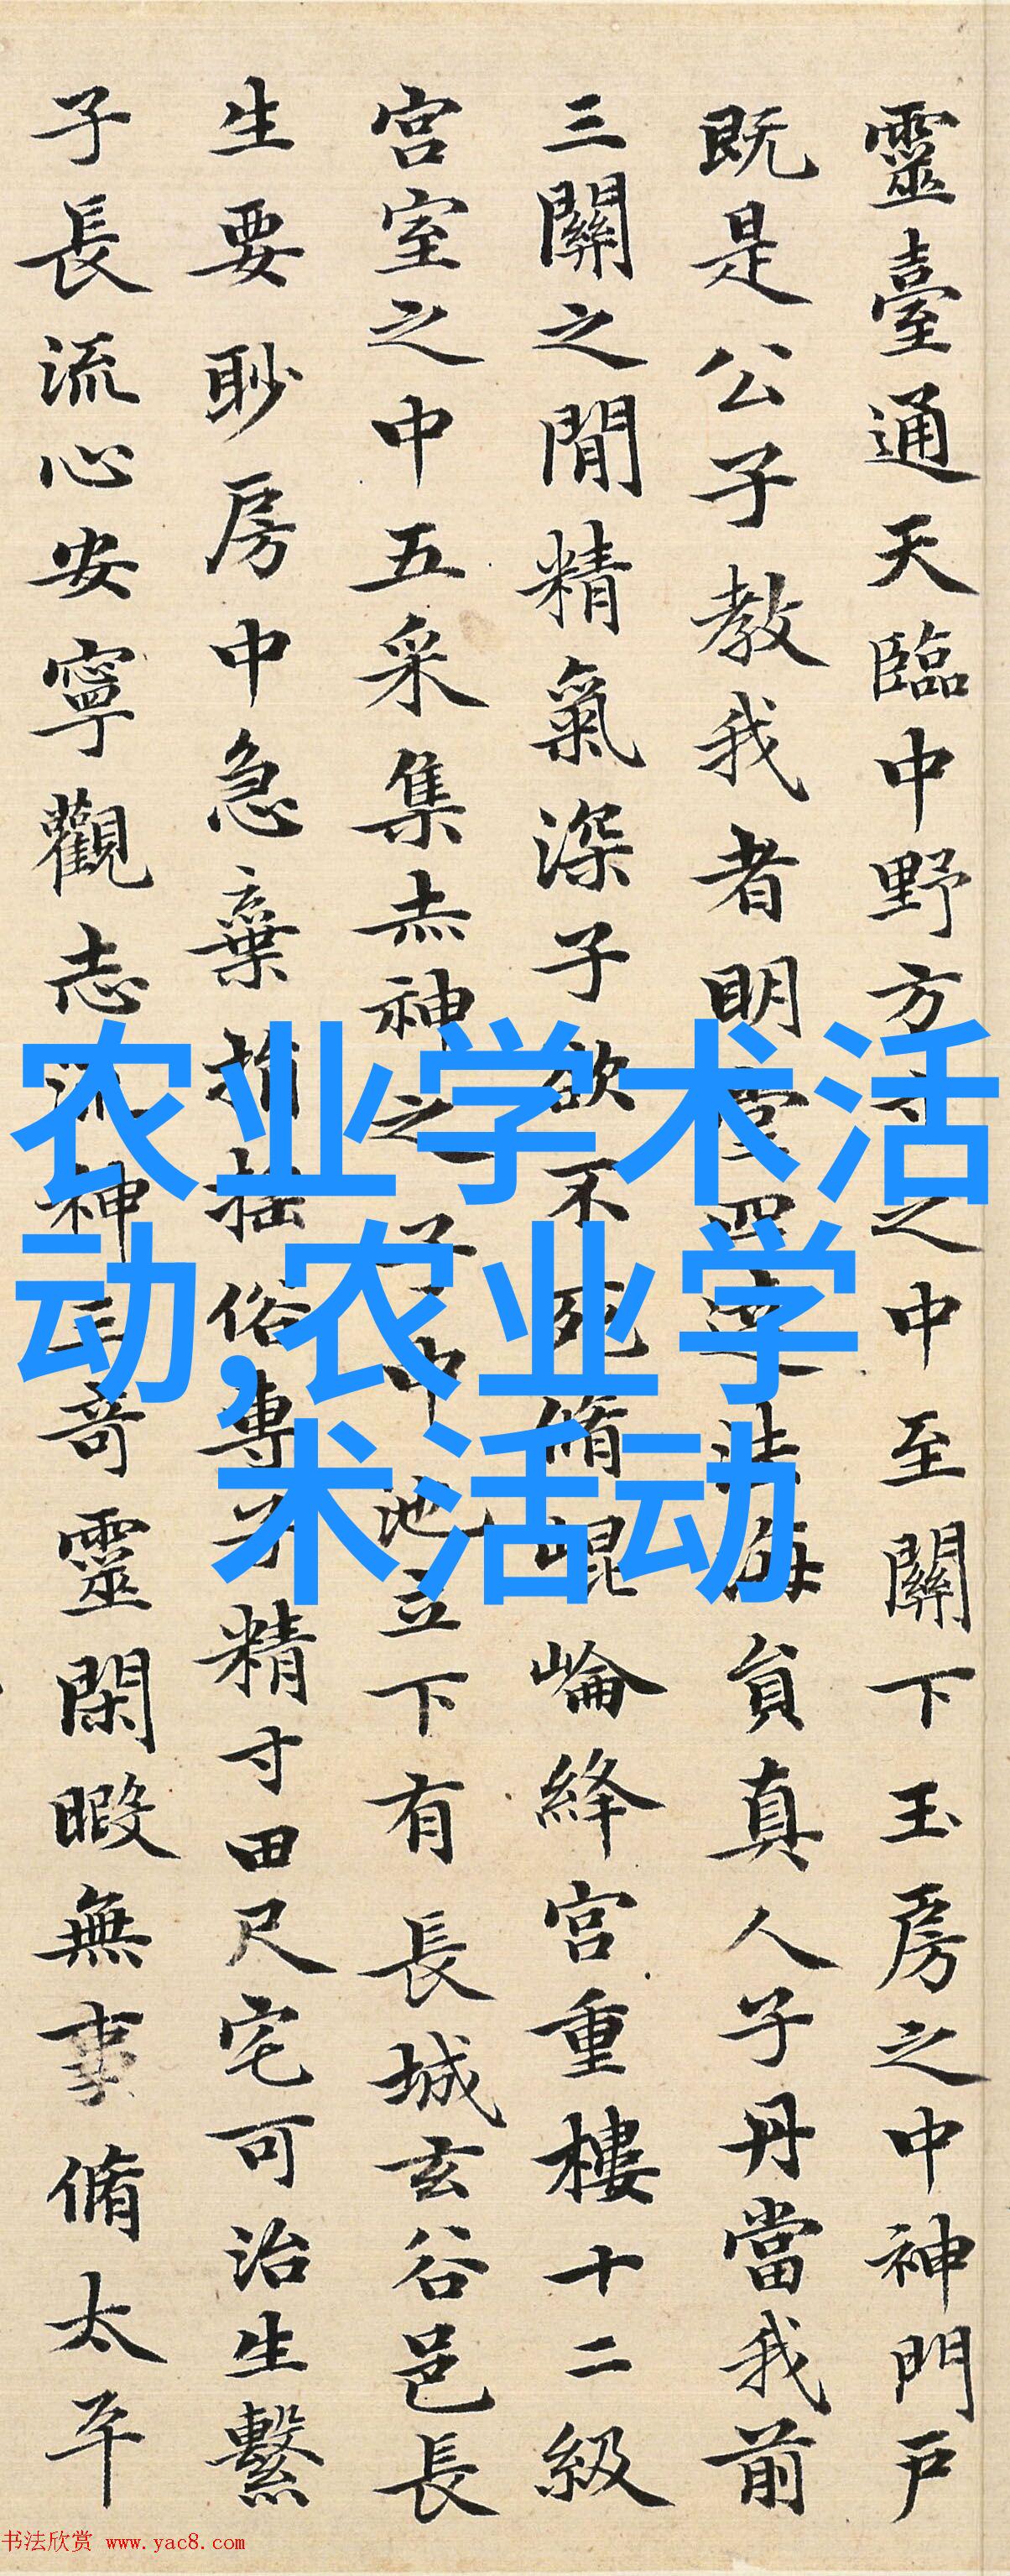 靈臺通天臨中野方寸之中至關下玉房之中神門戶
既是公子教我者明堂四達法海員真人子丹當我前
三關之閒精氣深子欲不死脩崐崘絳宮重樓十二級
宮室之中五采集赤神之子中池立下有長城玄谷邑長
生要眇房中急棄捐搖俗專子精寸田尺宅可治生繫
子長流心安寧觀志流神三奇靈閑暇無事脩太平
农业学术活
动,农业学
术活动
书法欣赏 www.yac8.com